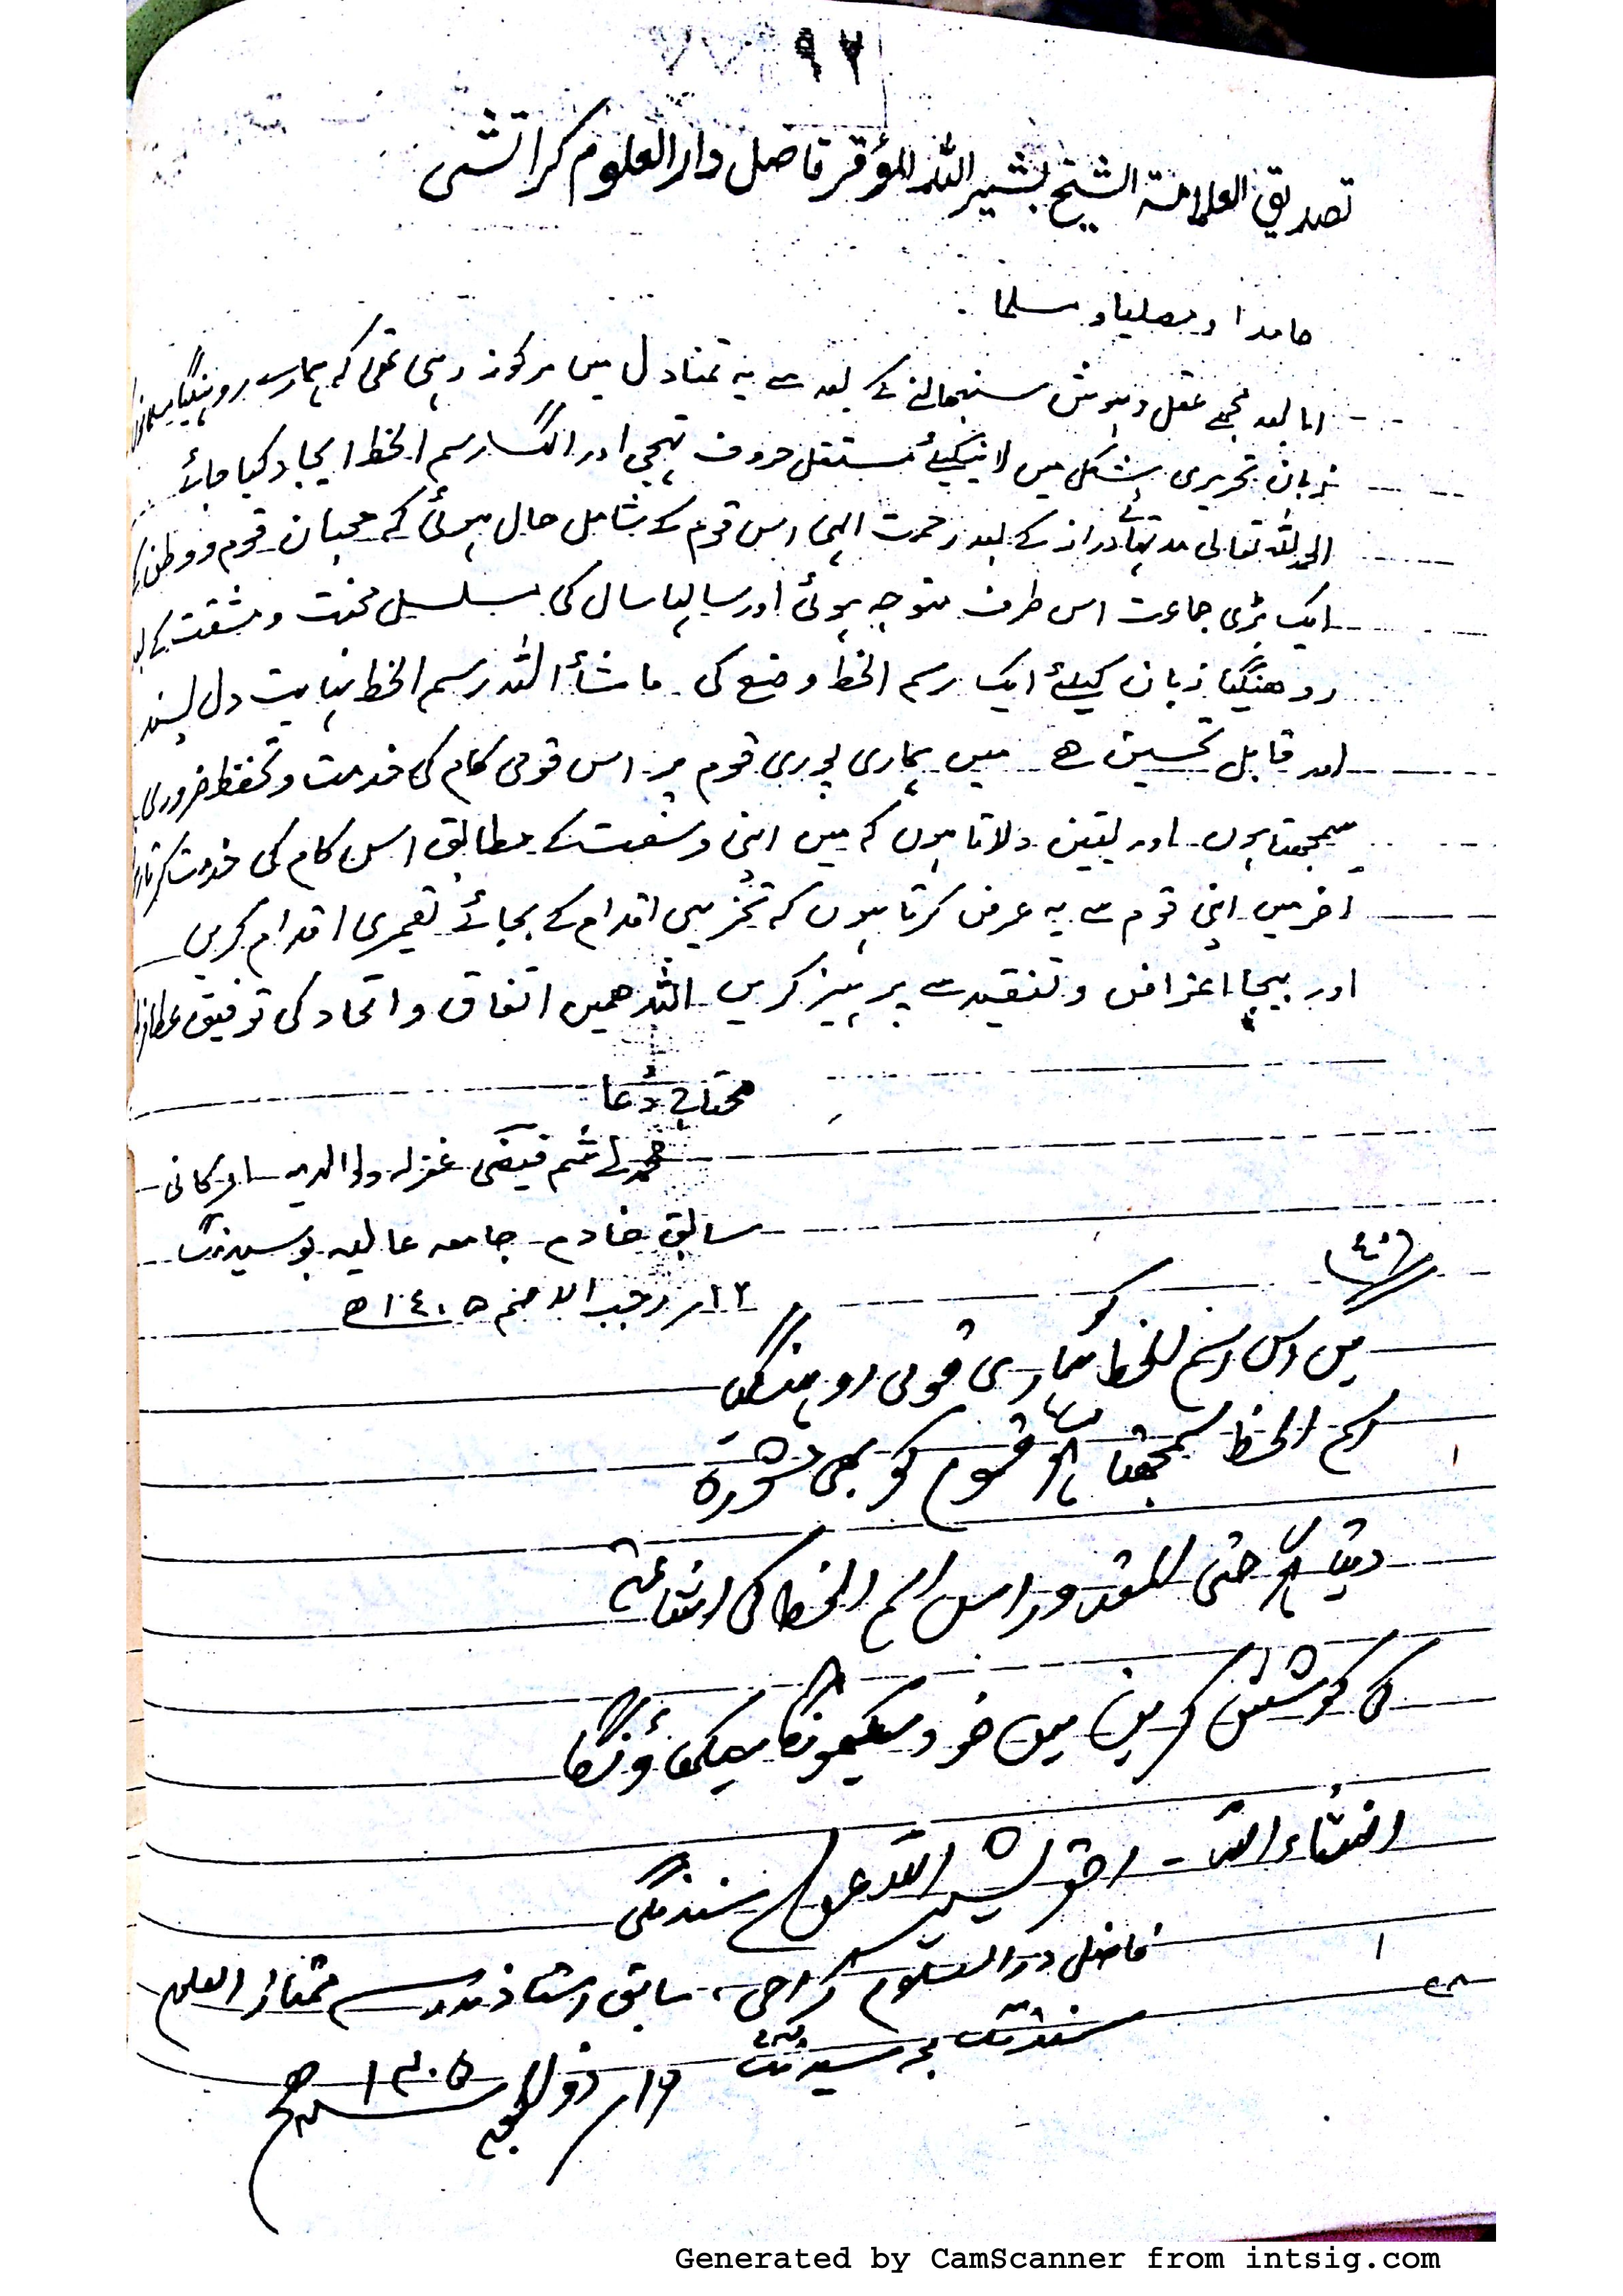 ٩٢
تصدیق العلامة الشیخ بشیر اللہ المؤقر فاضل دار العلوم کراتشی
حامدا و مصلیا و مسلما
اما بعد مجھے عقل و ہوش سنبھالنے کے بعد سے یہ تمنا دل میں مرکوز رہی تھی کہ ہمارے روہنگیا
زبان تحریری شکل میں لانیکیلئے مستقل حروف تہجی اور الگ رسم الخط ایجاد کیا جائے
الحمد للہ تعالی مدتہائے دراز کے بعد رحمت الہی اس قوم کے شامل حال ہوئی کہ محبان قوم و وطن
ایک بڑی جماعت اس طرف متوجہ ہوئی اور سالہا سال کی مسلسل محنت و مشقت کے
روھنگیا زبان کیلئے ایک رسم الخط وضع کی ۔ ماشأ اللہ رسم الخط نہایت دل پسند
اور قابل تحسین ھے میں ہماری پوری قوم پر اس قومی کام کی خدمت و تحفظ ضروری
سمجھتا ہوں اور یقین دلاتا ہوں کہ میں اپنی وسعت کے مطابق اس کام کی خدمت کرتا
اخر میں اپنی قوم سے یہ عرض کرتا ہوں کہ تخریبی اقدام کے بجائے تعمیری اقدام کریں
اور بیجا اعتراض و تنقید سے پرہیز کریں اللہ ھمیں اتفاق و اتحاد کی توفیق عطا
محتاج دُعا
محمد ہاشم فیضی غفرلہ ولوالدیہ ارکانی
سابق خادم جامعہ عالیہ بوسیدنگ
١٢ر رجب الاصم ١٤٠٥ھ
میں اس رسم الخط کو ہماری قومی روہنگیا
رسم الخط سمجھتا ہوں قوم کو بھی مشورہ
دیتا ہوں حتی المقدور اس رسم الخط کی اشاعت
کی کوشش کریں میں خود سیکھونگا سیکھاؤنگا
انشاء اللہ ۔ احقر بشیر اللہ سندنگی
فاضل دار العلوم کراچی، سابق استاذ مدرسہ ممتاز العلوم
سندنگ بوسیدنگ ١٦ر ذو الحجہ ١٤٠٥ھ
Generated by CamScanner from intsig.com